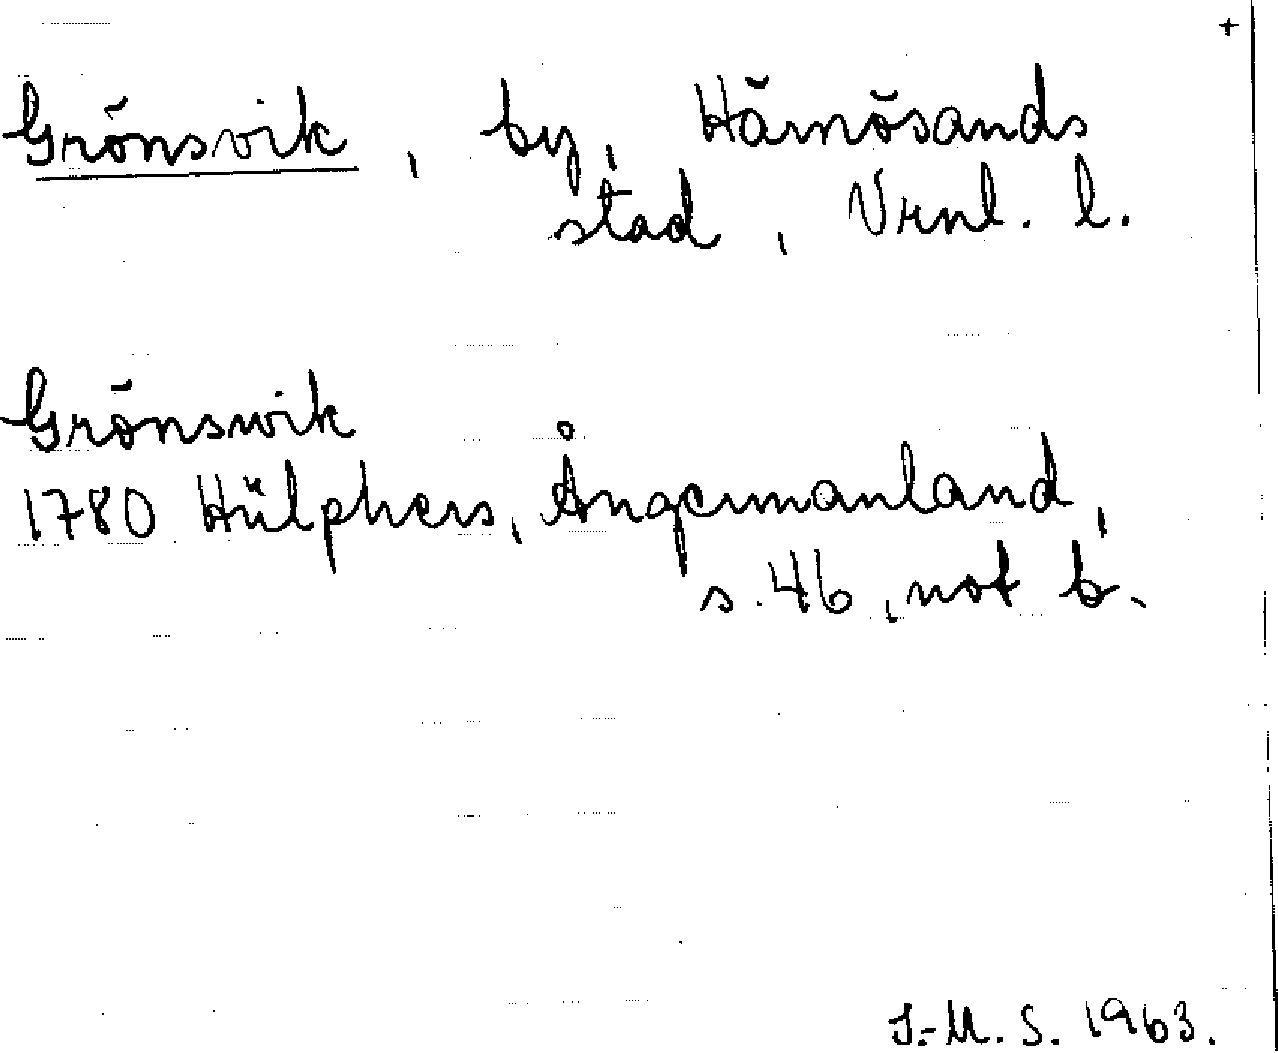 +
Grönsvik, by, Härnösands
stad, Vrnl. l.
Grönswik
1780 Hülphers, Ångermanland,
s. 46, not b.
J.-M. S. 1963.